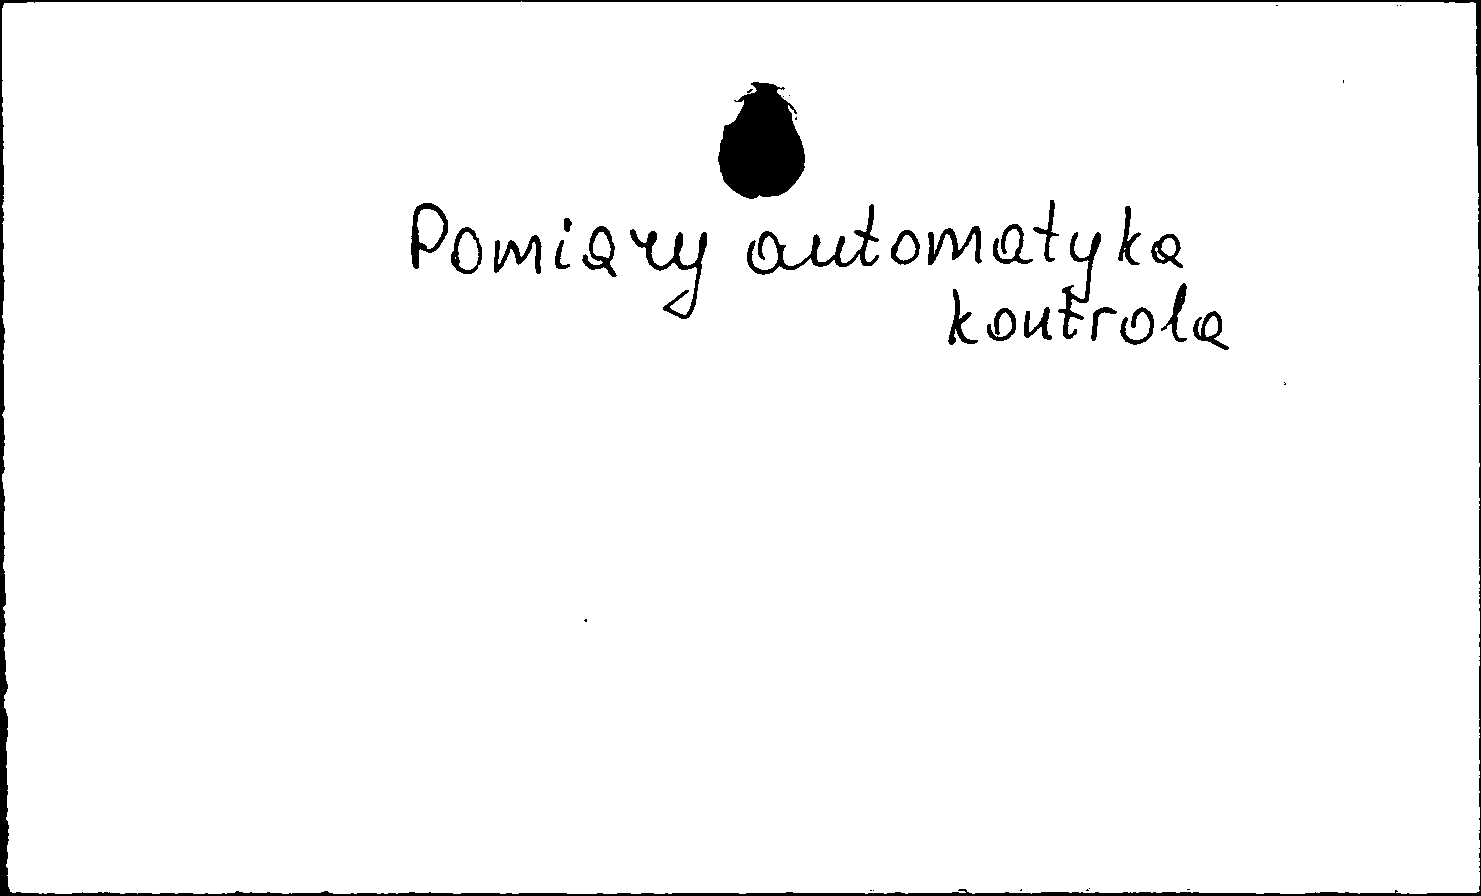 Pomiary automatyka
kontrola